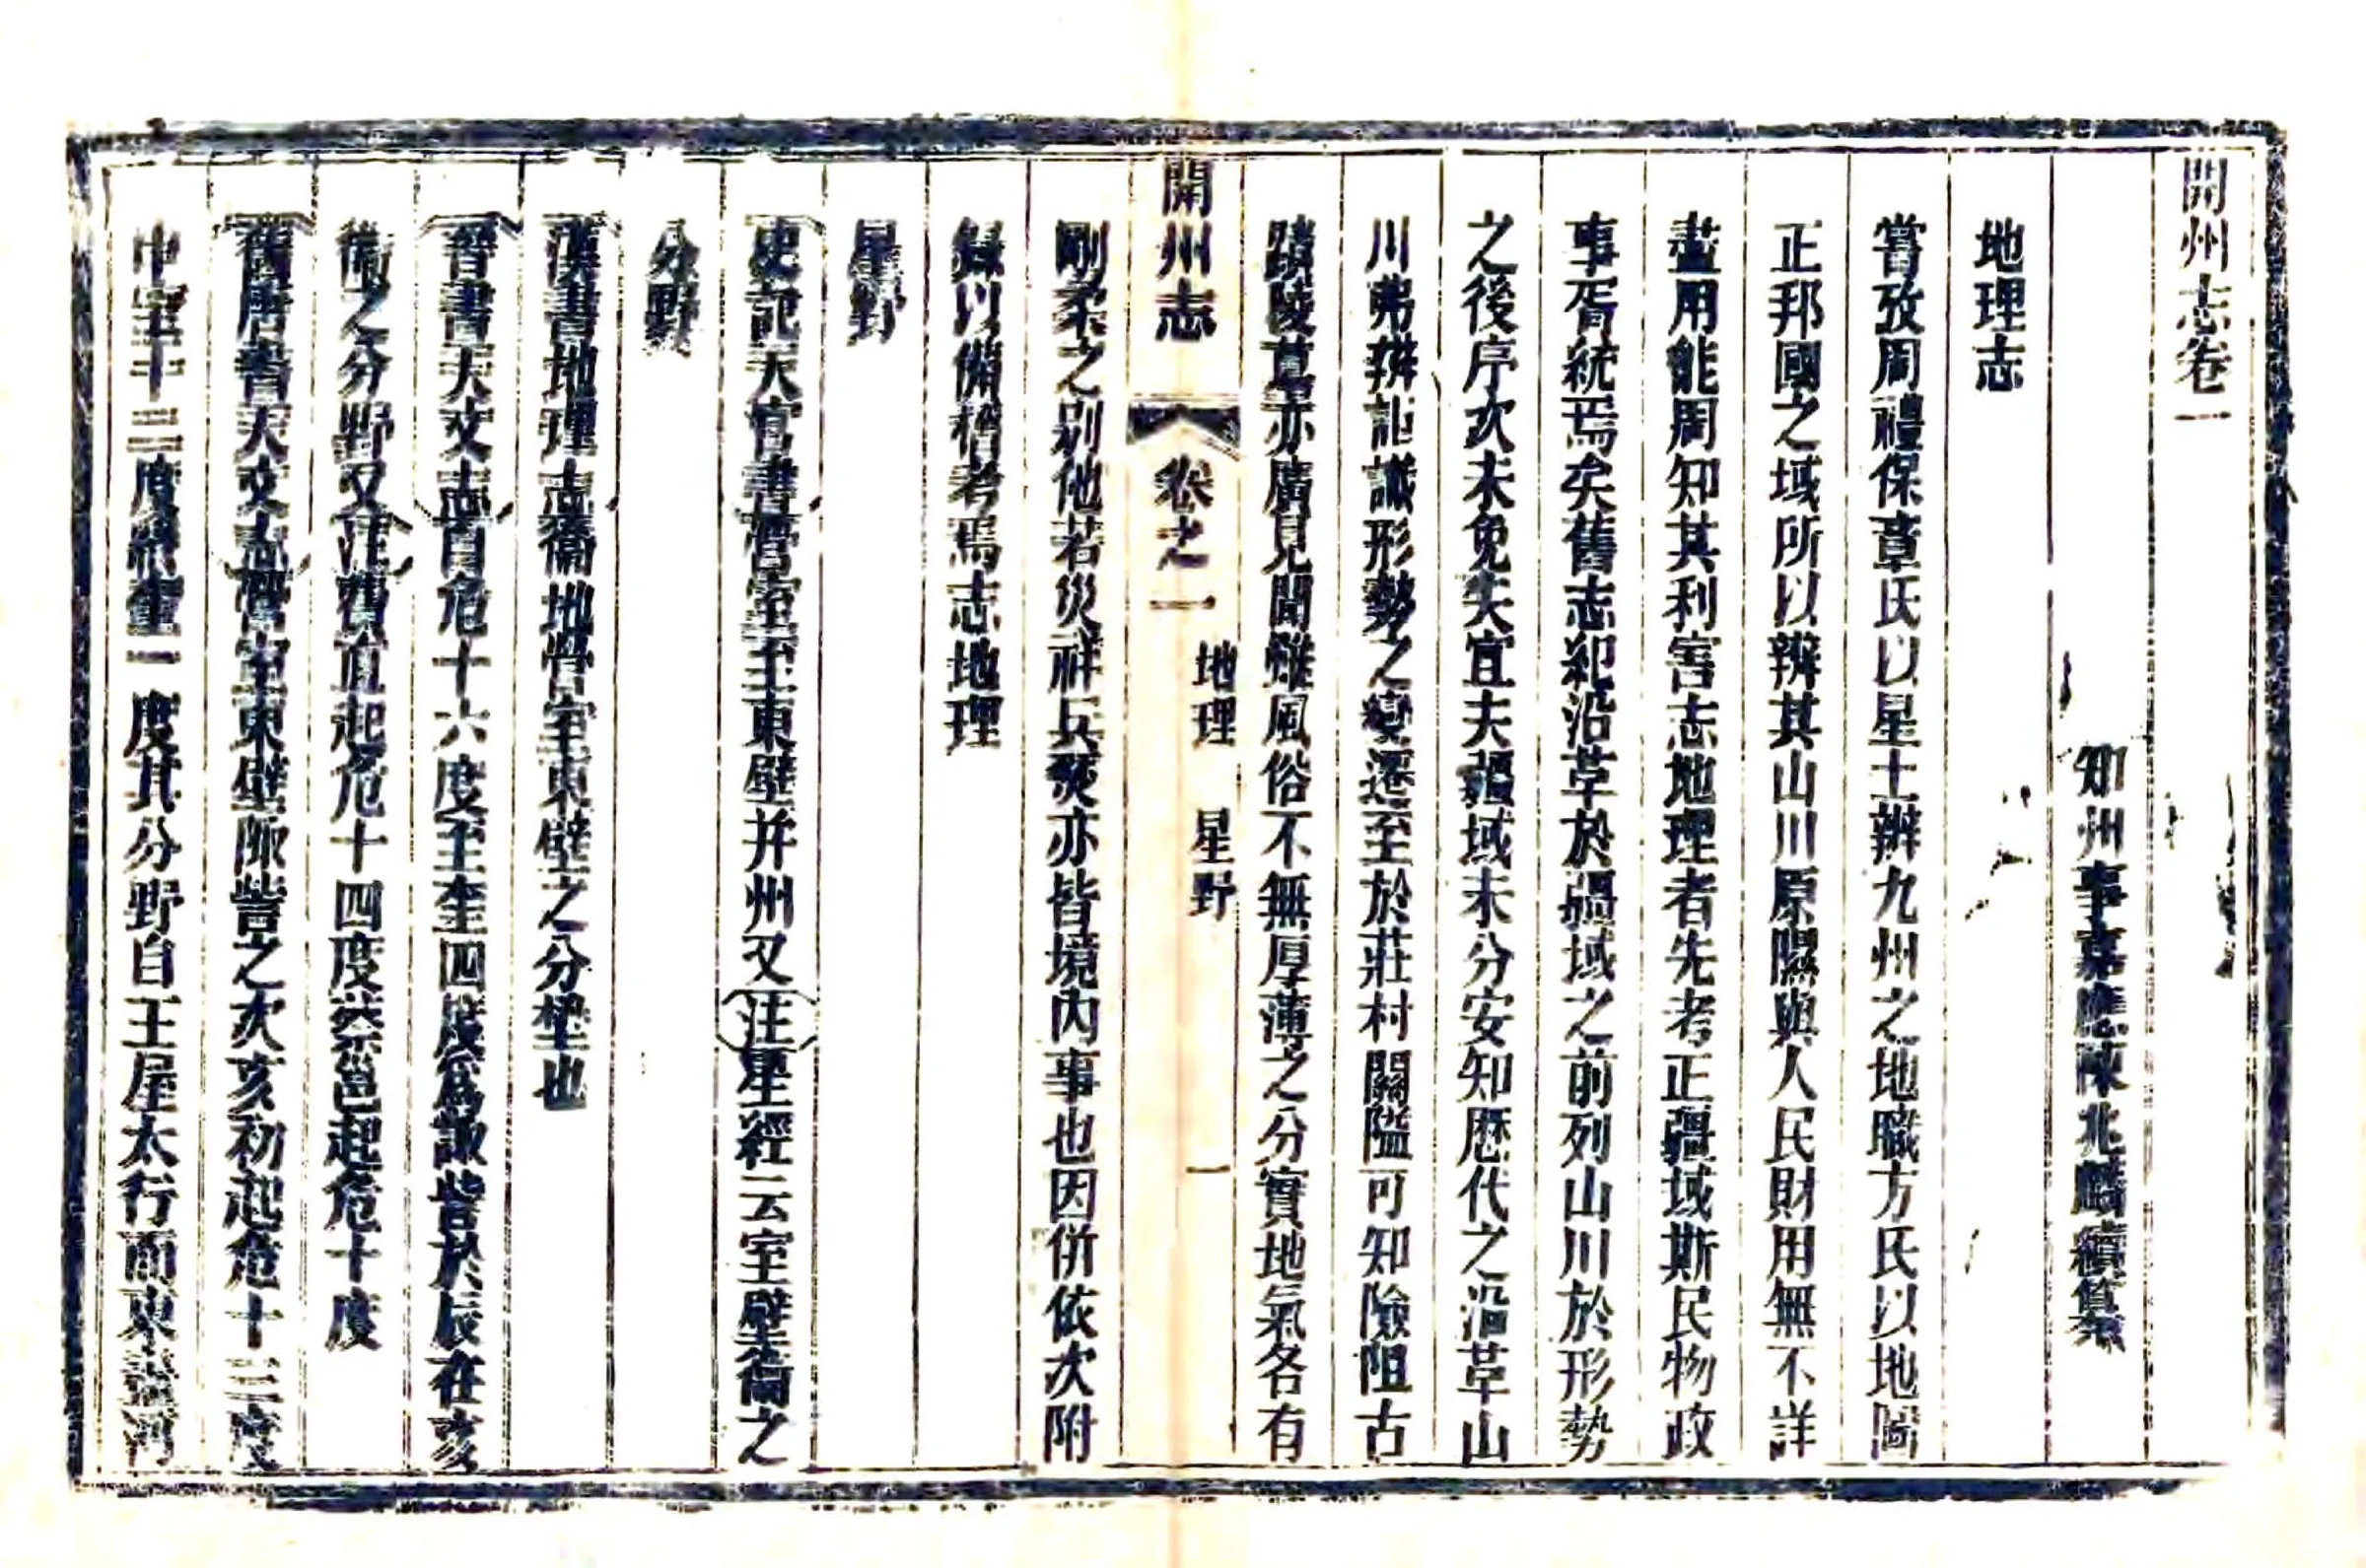 開州志卷一
知州事嘉應陳兆麟續纂
地理志
嘗攷周禮保章氏以星土辨九州之地職方氏以地圖
正邦國之域所以辨其山川原隰與人民財用無不詳
盡用能周知其利害志地理者先考正疆域斯民物政
事胥統焉矣舊志紀沿革於疆域之前列山川於形勢
之後序次未免失宜夫疆域未分安知歷代之沿革山
川弗辨詎識形勢之變遷至於莊村關隘可知險阻古
蹟陵墓亦廣見聞雖風俗不無厚薄之分實地氣各有
開州志 卷之一 地理 星野 一
剛柔之別他若災祥兵燹亦皆境內事也因併依次附
錄以備稽考焉志地理
星野
史記天官書營室至東壁并州又注星經云室壁衞之
分野
漢書地理志衞地營室東壁之分壄也
晉書天文志自危十六度至奎四度為諏訾於辰在亥
衞之分野又注費直起危十四度蔡邕起危十度
舊唐書天文志營室東壁陬訾之次亥初起危十三度
中室十二度終奎一度其分野自王屋太行而東盡河